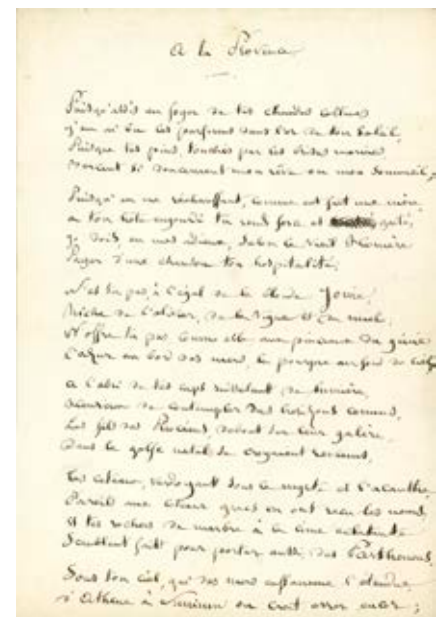 A la Provence
Puisqu'assis au foyer de tes chaudes collines
j'ai bu les parfums dans l'or de ton soleil,
Puisque tes pins, touchés par les brises marines
si doucement mon rêve ou mon sommeil,
Puisqu'en me réchauffant, comme eut fait une mère,
A ton hôte engourdi tu rends force et gaîté,
Je dois, en mes adieux, selon le vieil Homère
Payer d'une chanson ton hospitalité.
N'es tu pas, à l'égal de la blonde Ionie,
Riche de l'olivier, de la vigne et du miel,
N'offres tu pas comme elle aux du génie
L'azur au bord des mers, la pourpre au fond du ciel
A l'abri de tes caps ruisselant de lumière,
de contempler des horizons connus,
Les fils des Phocéens, debout sur leur galère,
Dans le golfe natal se croyaient revenus,
Tes coteaux, verdoyant sous le myrte et l'acanthe,
Pareils aux grecs en ont reçu les noms,
Et tes rochers de marbre à la cime éclatante
Semblent faits pour porter aussi des Parthénons.
Sous ton ciel, qui des mers l'étendue,
d'Athène à on croit errer encor ;